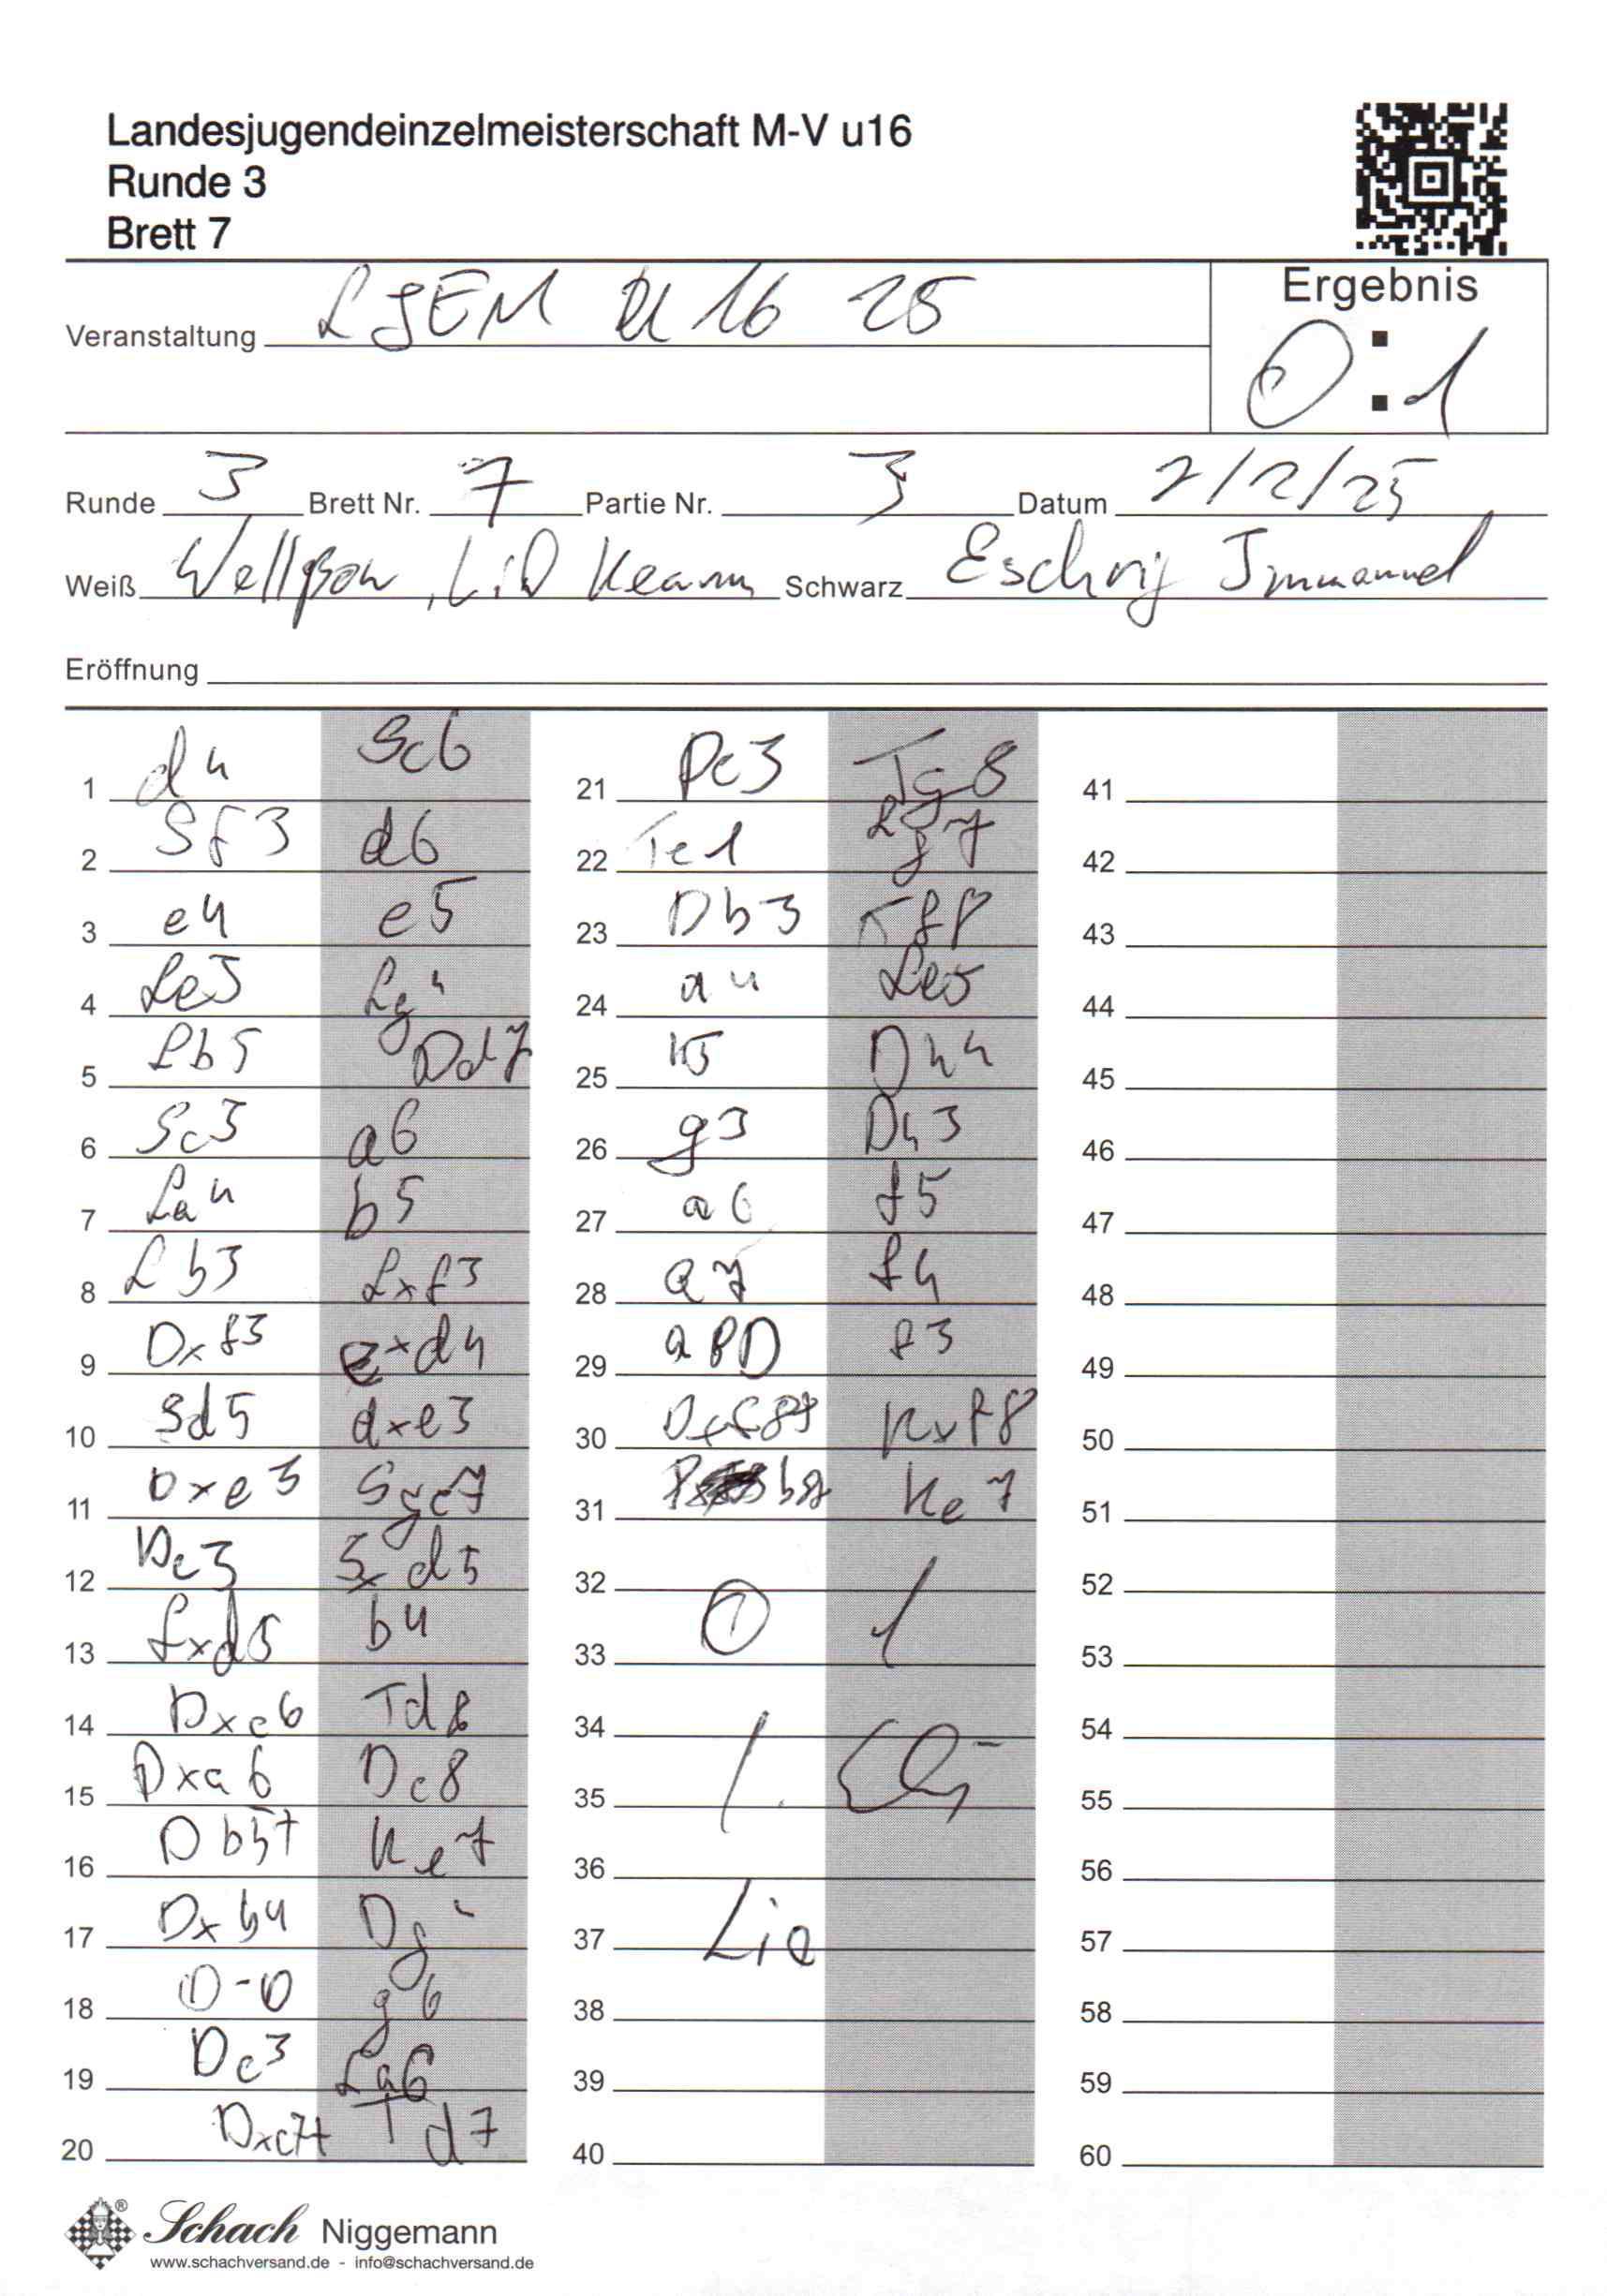 Landesjugendeinzelmeisterschaft M-V u16
Runde 3
Brett 7
Veranstaltung LJEM U 16 25
Ergebnis
0 : 1
Runde 3 Brett Nr. 7 Partie Nr. 3 Datum 2/2/25
Weiß Schwarz Eschrig Immanuel
Eröffnung
1 d4 Sc6
2 Sf3 d6
3 e4 e5
4 Le3 Lg4
5 Lb5 Dd7
6 Sc3 a6
7 La4 b5
8 Lb3 Lxf3
9 Dxf3 exd4
10 Sd5 dxe3
11 Dxe3 Sge7
12 Dc3 Sxd5
13 Lxd5 b4
14 Dxc6 Td8
15 Dxa6 Dc8
16 Db5+ Ke7
17 Dxb4 Dg4
18 0-0 g6
19 Dc3 La6
20 Dxc7+ Td7
21 Dc3 Tg8
22 Te1 Lg7
23 Db3 Tf8
24 a4 Le5
25 a5 Dh4
26 g3 Dh3
27 a6 f5
28 a7 f4
29 a8D f3
30 Dxf8+ Kxf8
31 b8 Ke7
32
33 0 1
34
35
36
37 Lia
38
39
40
41
42
43
44
45
46
47
48
49
50
51
52
53
54
55
56
57
58
59
60
Schach Niggemann
www.schachversand.de - info@schachversand.de